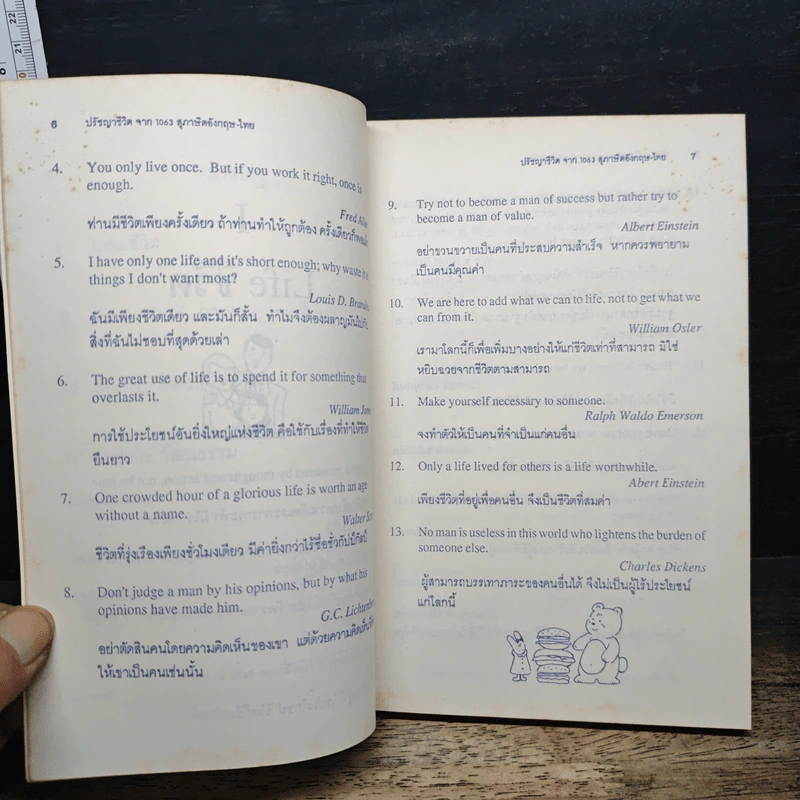 6 ปรัชญาชีวิต จาก 1063 สุภาษิตอังกฤษ-ไทย
4. You only live once. But if you work it right, once is
enough.
Fred
ท่านมีชีวิตเพียงครั้งเดียว ถ้าท่านทำให้ถูกต้อง ครั้งเดียวก็
5. I have only one life and it's short enough; why waste it
things I don't want most?
Louis D.
ฉันมีเพียงชีวิตเดียว และมันก็สั้น ทำไมจึงต้องผลาญมันไป
สิ่งที่ฉันไม่ชอบที่สุดด้วยเล่า
6. The great use of life is to spend it for something that
overlasts it.
William
การใช้ประโยชน์อันยิ่งใหญ่แห่งชีวิต คือใช้กับเรื่องที่ทำให้ชีวิต
ยืนยาว
7. One crowded hour of a glorious life is worth an age
without a name.
Walter
ชีวิตที่รุ่งเรืองเพียงชั่วโมงเดียว มีค่ายิ่งกว่าไร้ชื่อชั่วกัปป์กัลป์
8. Don't judge a man by his opinions, but by what his
opinions have made him.
G.C.
อย่าตัดสินคนโดยความคิดเห็นของเขา แต่ด้วยความคิดเห็น
ให้เขาเป็นคนเช่นนั้น
ปรัชญาชีวิต จาก 1063 สุภาษิตอังกฤษ-ไทย 7
9. Try not to become a man of success but rather try to
become a man of value.
Albert Einstein
อย่าขวนขวายเป็นคนที่ประสบความสำเร็จ หากควรพยายาม
เป็นคนมีคุณค่า
10. We are here to add what we can to life, not to get what we
can from it.
William Osler
เรามาโลกนี้ก็เพื่อเพิ่มบางอย่างให้แก่ชีวิตเท่าที่สามารถ มิใช่
หยิบฉวยจากชีวิตตามสามารถ
11. Make yourself necessary to someone.
Ralph Waldo Emerson
จงทำตัวให้เป็นคนที่จำเป็นแก่คนอื่น
12. Only a life lived for others is a life worthwhile.
Abert Einstein
เพียงชีวิตที่อยู่เพื่อคนอื่น จึงเป็นชีวิตที่สมค่า
13. No man is useless in this world who lightens the burden of
someone else.
Charles Dickens
ผู้สามารถบรรเทาภาระของคนอื่นได้ จึงไม่เป็นผู้ไร้ประโยชน์
แก่โลกนี้